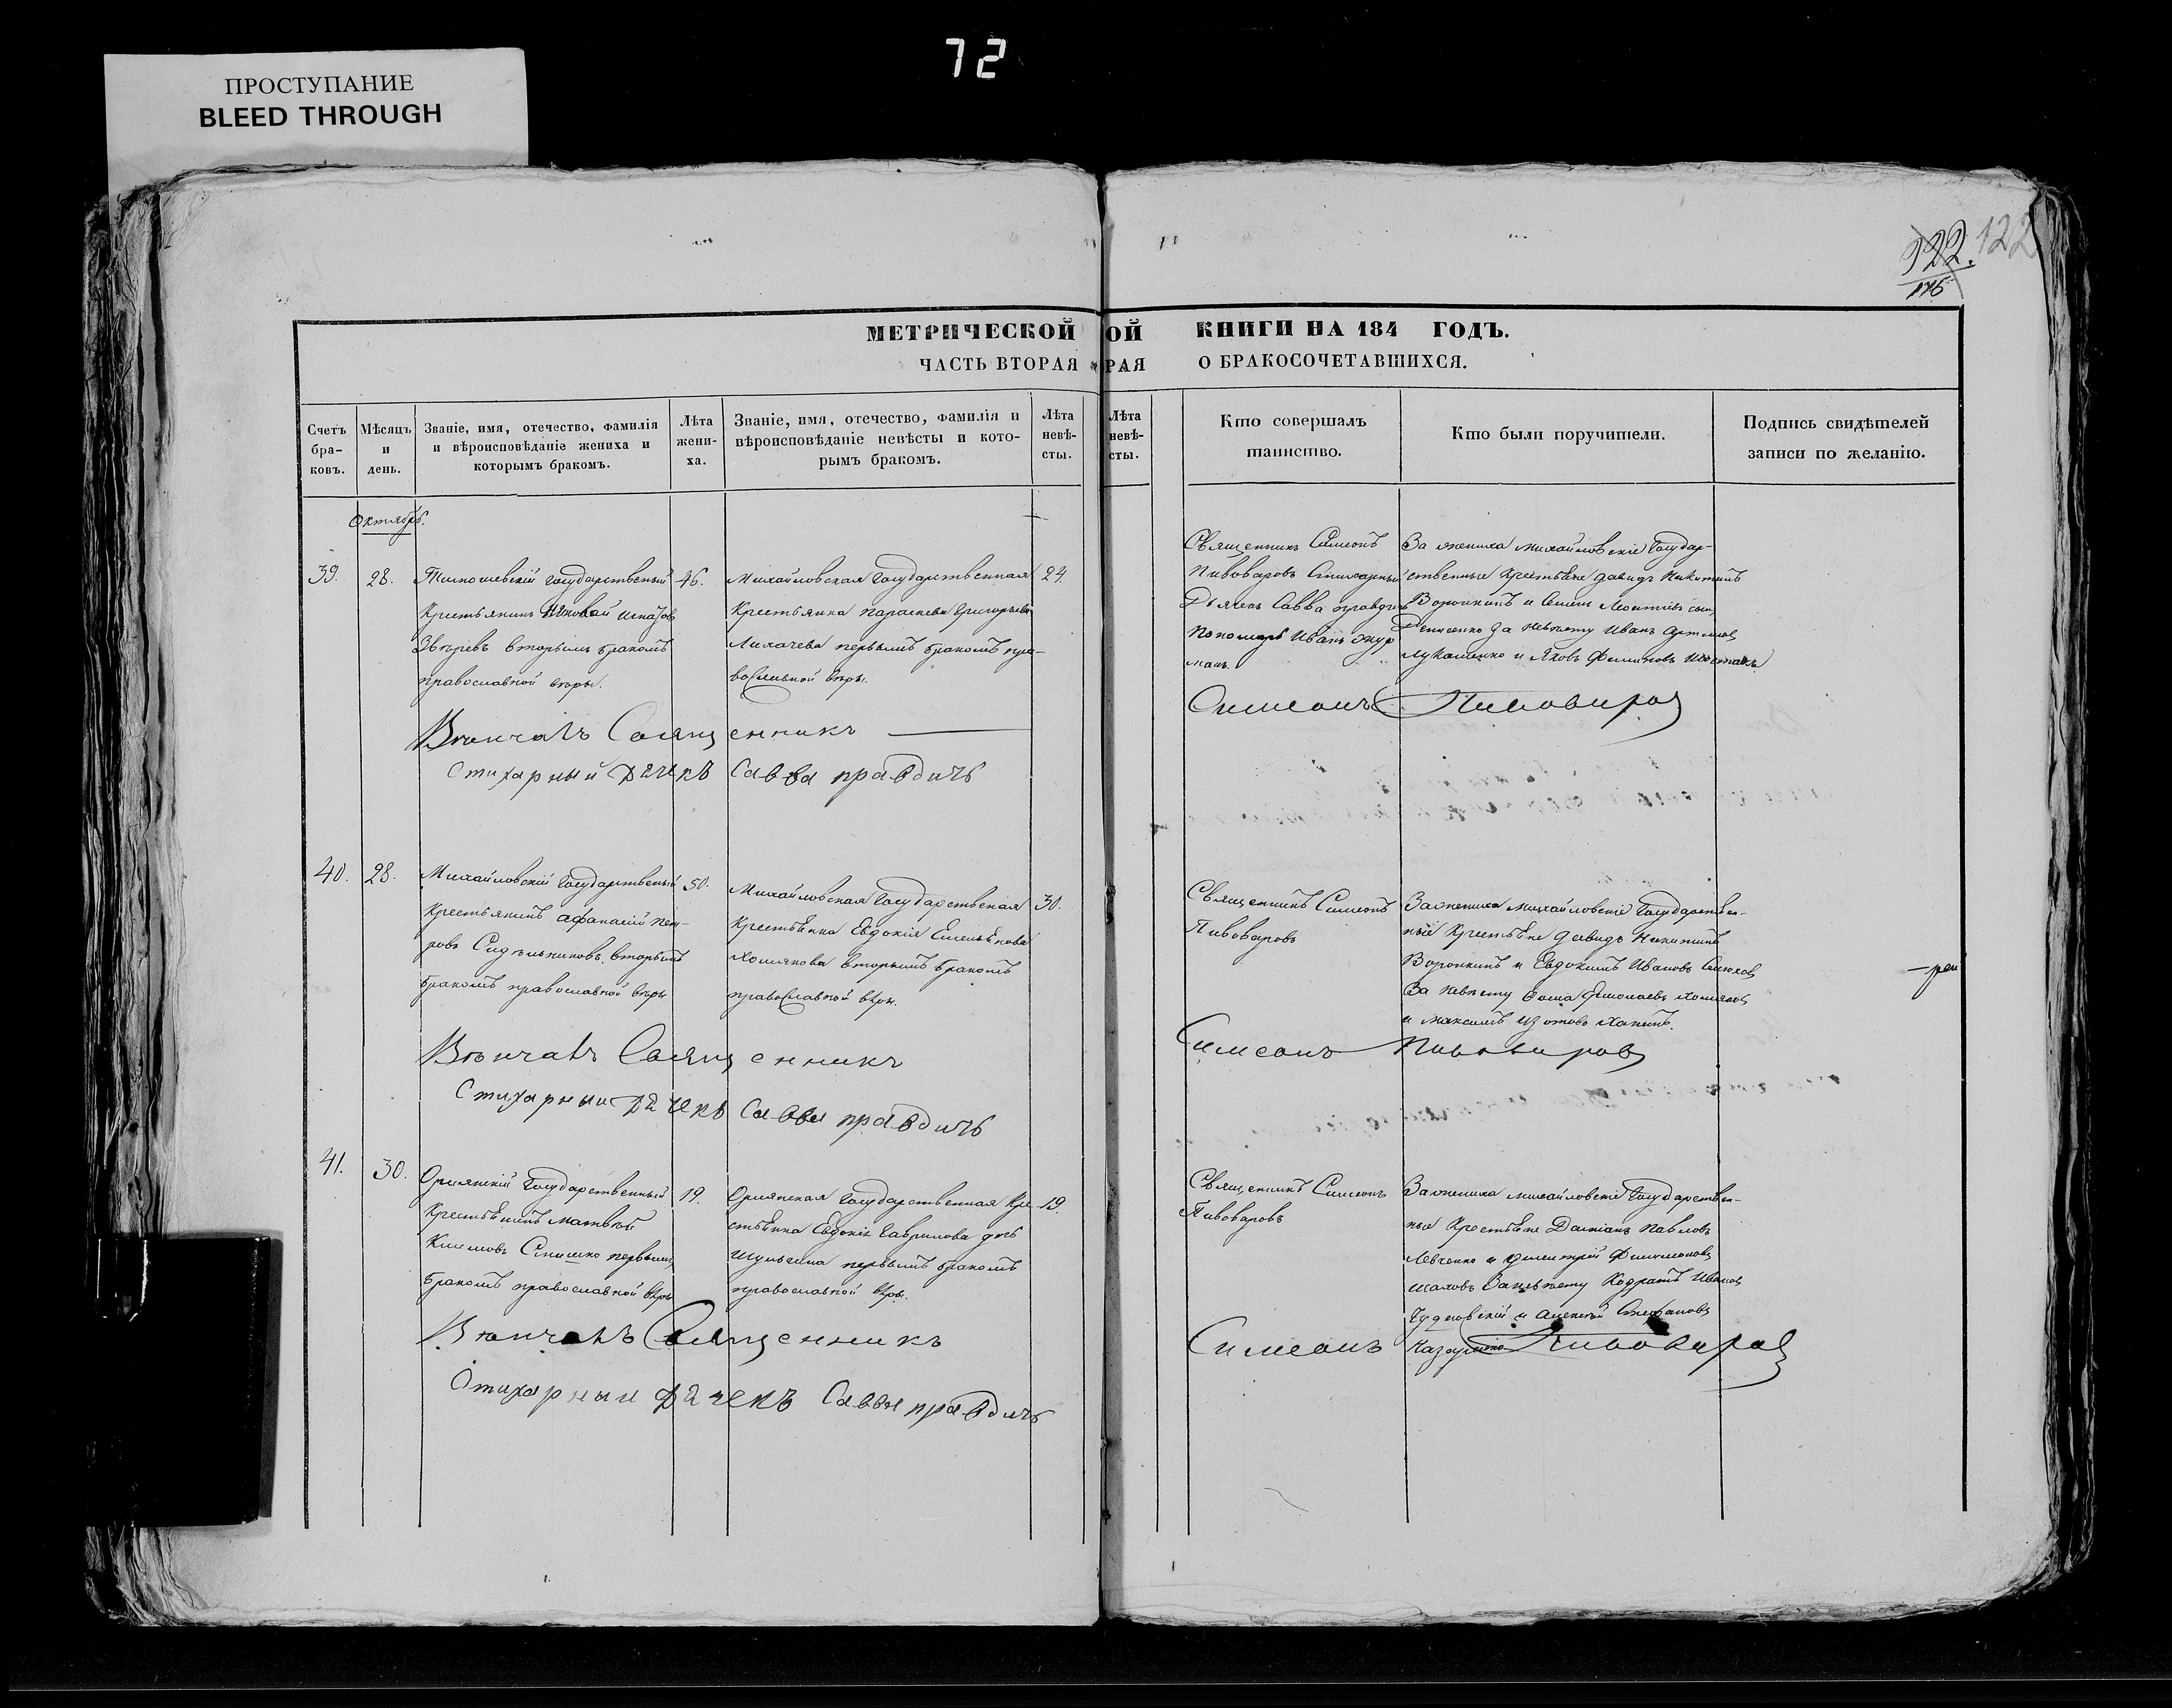 72
ПРОСТУПАНИЕ
BLEED THROUGH
122. 122
МЕТРИЧЕСКОЙ ОЙ КНИГИ НА 184 ГОДЪ.
ЧАСТЬ ВТОРАЯ РАЯ О БРАКОСОЧЕТАВШИХСЯ.
Счетъ бра-
ковъ.
Мѣсяцъ
и
день.
Званіе, имя, отечество, фамилія
и вѣроисповѣданіе жениха и
которымъ бракомъ.
Лѣта
жени-
ха.
Званіе, имя, отечество, фамилія и
вѣроисповѣданіе невѣсты и кото-
рымъ бракомъ.
Лѣта
невѣ-
сты.
Лѣта
невѣ-
сты.
Кто совершалъ
таинство.
Кто были поручители.
Подпись свидѣтелей
записи по желанію.
Октябрь.
39.
28.
Государственный
Крестьянинъ
Звѣревъ вторымъ бракомъ
православной вѣры.
46.
Михайловская Государственная
Крестьянка Параскева Григорьева
Лихачева первымъ бракомъ пра-
вославной вѣры.
24.
Священникъ Симеонъ
Пивоваровъ Стихарный
Дьячекъ Савва Правдичь
Пономарь Иванъ
За жениха Михайловскіе Государ-
ственные Крестьяне Давидъ Никитинъ
Воронкинъ и Семенъ Леонтіевъ сынъ
за невѣсту Иванъ
и Яковъ
Симеонъ Пивоваровъ
Вѣнчалъ Священникъ
Стихарный Дячекъ Савва Правдичь
40.
28.
Михайловскій Государственный
Крестьянинъ Афанасій Пет-
ровъ Сидѣльниковъ вторымъ
бракомъ православной вѣры
50.
Михайловская Государственная
Крестьянка Евдокія Емельянова
Хомякова вторымъ бракомъ
православной вѣры.
30.
Священникъ Симеонъ
Пивоваровъ
За жениха Михайловскіе Государствен-
ные Крестьяне Давидъ Никитинъ
Воронкинъ и Евдокимъ Ивановъ
За невѣсту Хомяковъ
и Максимъ Изотовъ
Симеонъ Пивоваровъ
Вѣнчалъ Священникъ
Стихарный Дячекъ Савва Правдичь
41.
30.
Орлянскій Государственный
Крестьянинъ Матвѣй
Климовъ первымъ
бракомъ православной вѣры
19.
Орлянская Государственная Кре-
стьянка Евдокія Гаврилова дочь
Шульгина первымъ бракомъ
православной вѣры.
19.
Священникъ Симеонъ
Пивоваровъ
За жениха Михайловскіе Государствен-
ные Крестьяне Даміанъ Павловъ
Левченко и Димитрій Филимоновъ
За невѣсту Кодратъ Ивановъ
и Алексѣй Стефановъ
Симеонъ Пивоваровъ
Вѣнчалъ Священникъ
Стихарный Дячекъ Савва Правдичь